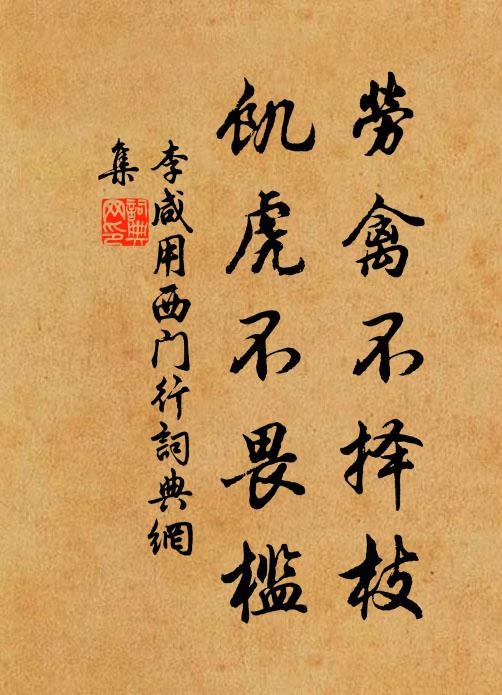 勞禽不择枝
飢虎不畏槛
李咸用西门行詞典網
集
詞典
网印